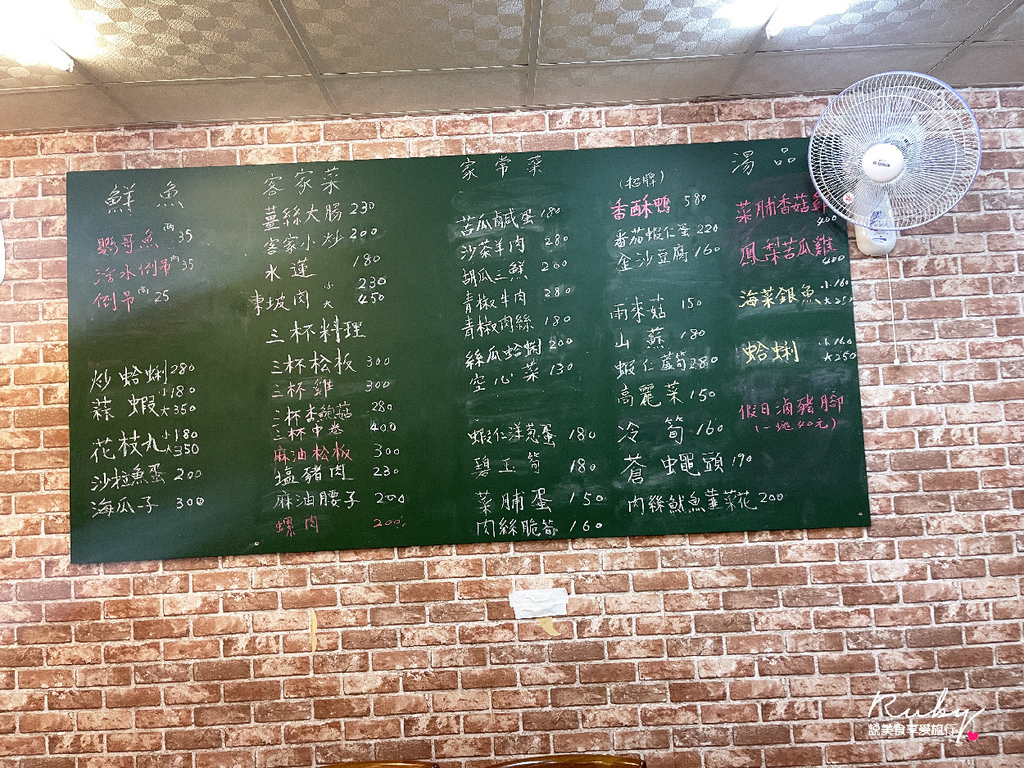 鮮魚
鱘哥魚 兩35
活水倒吊 兩35
倒吊 兩25
炒蛤蜊 280
蒜蝦 小180 大350
花枝丸 小180 大350
沙拉魚蛋 200
海瓜子 300
客家菜
薑絲大腸 230
客家小炒 200
水蓮 180
東坡肉 小230 大450
三杯料理
三杯松板 300
三杯雞 300
三杯杏鮑菇 280
三杯中卷 400
麻油松板 300
塩豬肉 230
麻油腰子 200
螺肉 200
家常菜
苦瓜鹹蛋 180
沙茶羊肉 280
胡瓜三鮮 200
青椒牛肉 280
青椒肉絲 180
絲瓜蛤蜊 200
空心菜 130
蝦仁洋蔥蛋 180
碧玉筍 180
菜脯蛋 150
肉絲脆筍 160
(招牌)
香酥鴨 580
番茄蝦仁蛋 220
金沙豆腐 160
雨來菇 150
山蘇 180
蝦仁蘆筍 280
高麗菜 150
冷筍 160
蒼蠅頭 190
肉絲魷魚韮菜花 200
湯品
菜脯香菇雞 400
鳳梨苦瓜雞 400
海菜銀魚 小160 大250
蛤蜊 小160 大250
假日滷豬腳
(一塊40元)
Ruby
說美食享受旅行